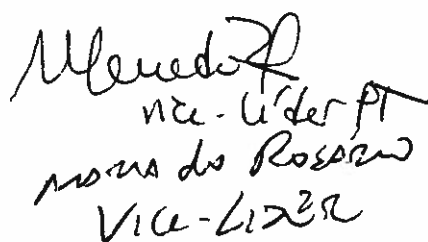 Vice-Líder PT
Maria do Rosário
VICE-LÍDER